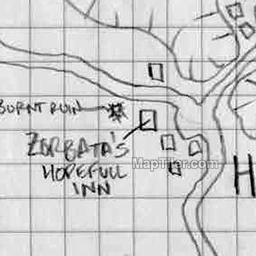 BURNT RUIN
ZORBATA'S
HOPEFULL
INN
MapTiler.com
H